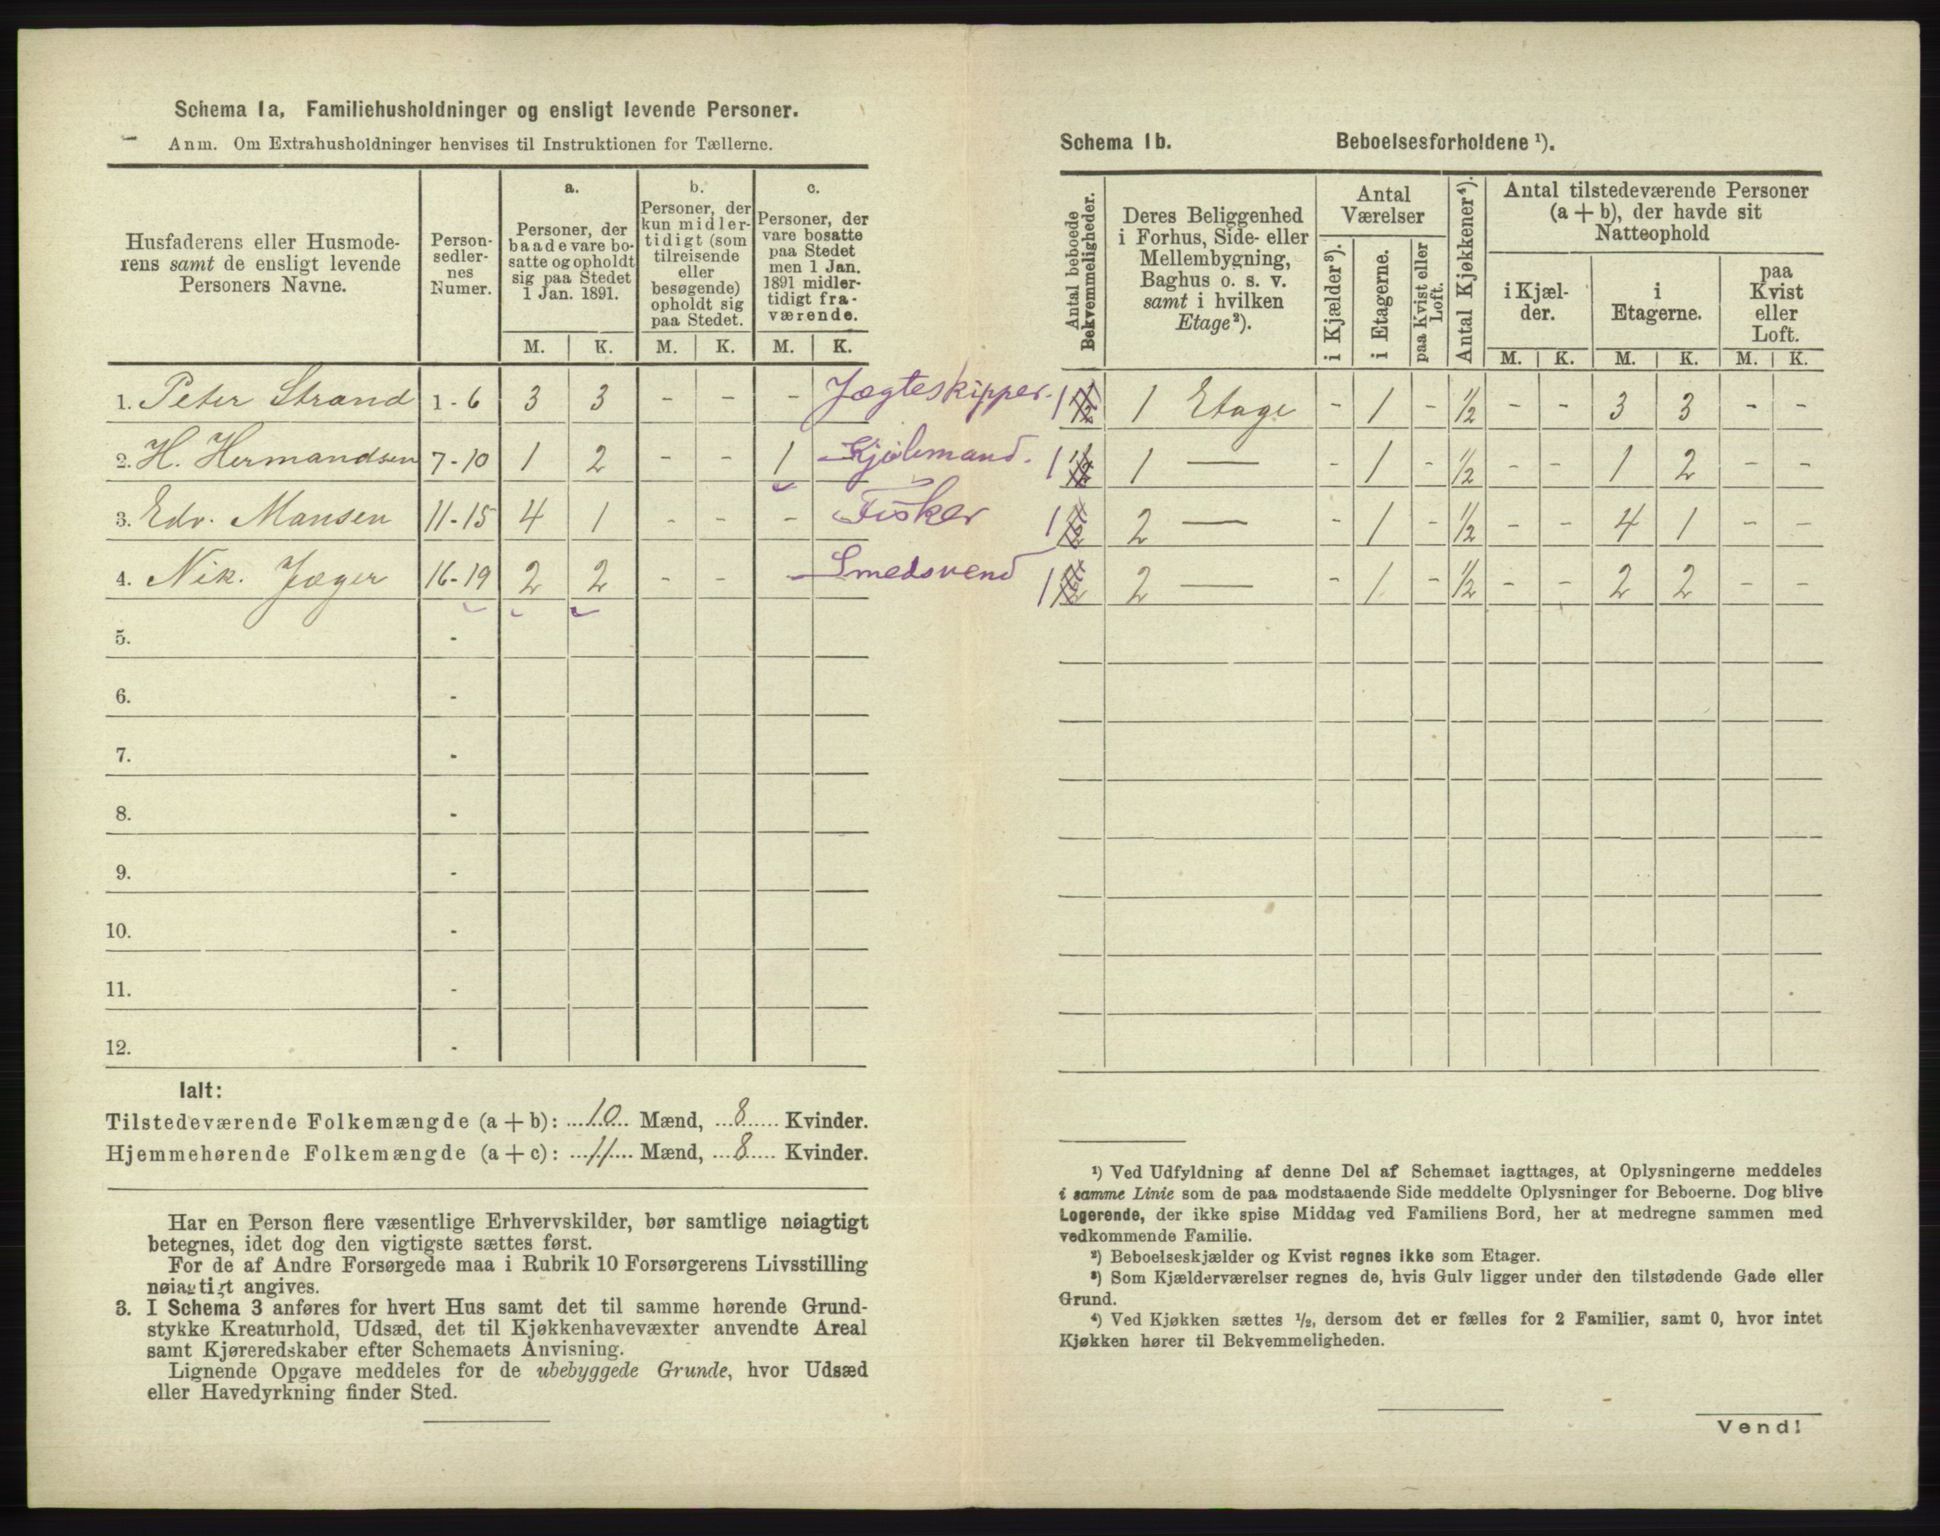 Schema 1a, Familiehusholdninger og ensligt levende Personer.
Anm. Om Extrahusholdninger henvises til Instruktionen for Tællerne.
Husfaderens eller Husmode-
rens samt de ensligt levende
Personers Navne.
Person-
sedler-
nes
Numer.
a.
Personer, der
baade vare bo-
satte og opholdt
sig paa Stedet
1 Jan. 1891.
b.
Personer, der
kun midler-
tidigt (som
tilreisende
eller
besøgende)
opholdt sig
paa Stedet.
c.
Personer, der
vare bosatte
paa Stedet
men 1 Jan.
1891 midler-
tidigt fra-
værende.
M. K. M. K. M. K.
1. Peter Strand 1 - 6 3 3 - - - Jægteskipper.
2. H. Hermandsen 7 - 10 1 2 - - 1 Kjølemand.
3. Edv. Mansen 11 - 15 4 1 - - - Fisker
4. Nik. Jæger 16 - 19 2 2 - - - Smedsvend
5. -
6. -
7. -
8. -
9. -
10. -
11. -
12. -
Ialt:
Tilstedeværende Folkemængde (a + b): 10 Mænd, 8 Kvinder.
Hjemmehørende Folkemængde (a + c): 11 Mænd, 8 Kvinder.
Har en Person flere væsentlige Erhvervskilder, bør samtlige nøiagtigt
betegnes, idet dog den vigtigste sættes først.
For de af Andre Forsørgede maa i Rubrik 10 Forsørgerens Livsstilling
nøiagtigt angives.
3. I Schema 3 anføres for hvert Hus samt det til samme hørende Grund-
stykke Kreaturhold, Udsæd, det til Kjøkkenhavevæxter anvendte Areal
samt Kjøreredskaber efter Schemaets Anvisning.
Lignende Opgave meddeles for de ubebyggede Grunde, hvor Udsæd
eller Havedyrkning finder Sted.
Schema 1b. Beboelsesforholdene ¹).
Antal beboede
Bekvemmeligheder.
Deres Beliggenhed
i Forhus, Side- eller
Mellembygning,
Baghus o. s. v.
samt i hvilken
Etage²).
Antal
Værelser
i Kjælder³).
i Etagerne.
paa Kvist eller
Loft.
Antal Kjøkkener⁴).
Antal tilstedeværende Personer
(a + b), der havde sit
Natteophold
i Kjæl-
der.
i
Etagerne.
paa
Kvist
eller
Loft.
M. K. M. K. M. K.
1 1 Etage - 1 - ½ - - 3 3 - -
1 1 — - 1 - ½ - - 1 2 - -
1 2 — - 1 - ½ - - 4 1 - -
1 2 — - 1 - ½ - - 2 2 - -
¹) Ved Udfyldning af denne Del af Schemaet iagttages, at Oplysningerne meddeles
i samme Linie som de paa modstaaende Side meddelte Oplysninger for Beboerne. Dog blive
Logerende, der ikke spise Middag ved Familiens Bord, her at medregne sammen med
vedkommende Familie.
²) Beboelseskjælder og Kvist regnes ikke som Etager.
³) Som Kjælderværelser regnes de, hvis Gulv ligger under den tilstødende Gade eller
Grund.
⁴) Ved Kjøkken sættes ½, dersom det er fælles for 2 Familier, samt 0, hvor intet
Kjøkken hører til Bekvemmeligheden.
Vend!